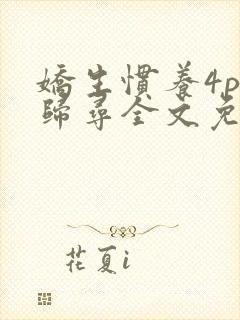 嬌生慣養4p
歸尋全文免
花夏i